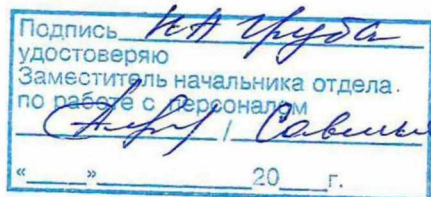 Подпись Н.А. Груба
удостоверяю
Заместитель начальника отдела
по работе с персоналом
/
«____»____________20___г.